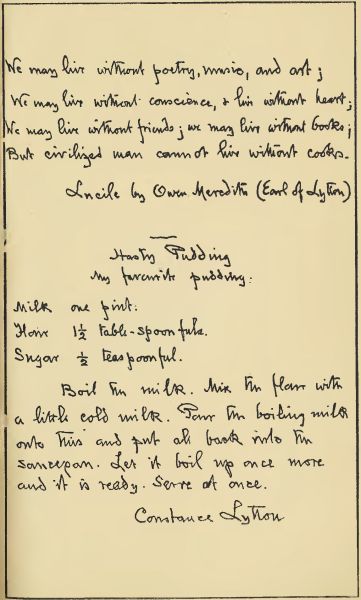 We may live without poetry, music, and art;
We may live without conscience, & live without heart;
We may live without friends; we may live without books;
But civilized man cannot live without cooks.
Lucile by Owen Meredith (Earl of Lytton)
Hasty Pudding
My favourite pudding.
Milk one pint.
Flour 1½ table-spoonfuls.
Sugar ½ teaspoonful.
Boil the milk. Mix the flour with
a little cold milk. Pour the boiling milk
onto this and put all back into the
saucepan. Let it boil up once more
and it is ready. Serve at once.
Constance Lytton